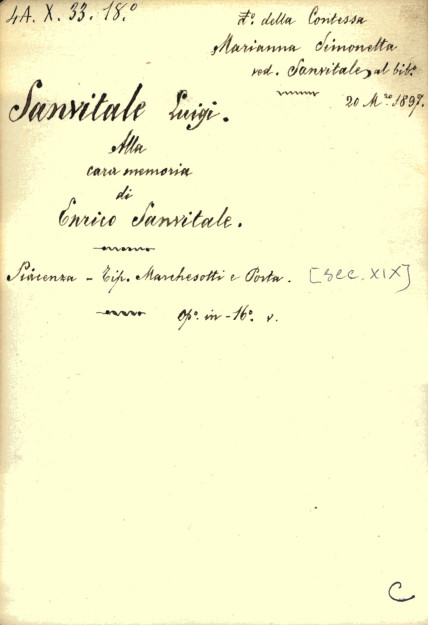 4A. X. 33. 18.º
Dº. della Contessa
Marianna Simonetta
ved. Sanvitale, al bibº.
20 Mzo. 1897.
Sanvitale Luigi.
Alla
cara memoria
di
Enrico Sanvitale.
Piacenza - Tip. Marchesotti e Porta. [sec. XIX]
opº. in-16º. v.
C